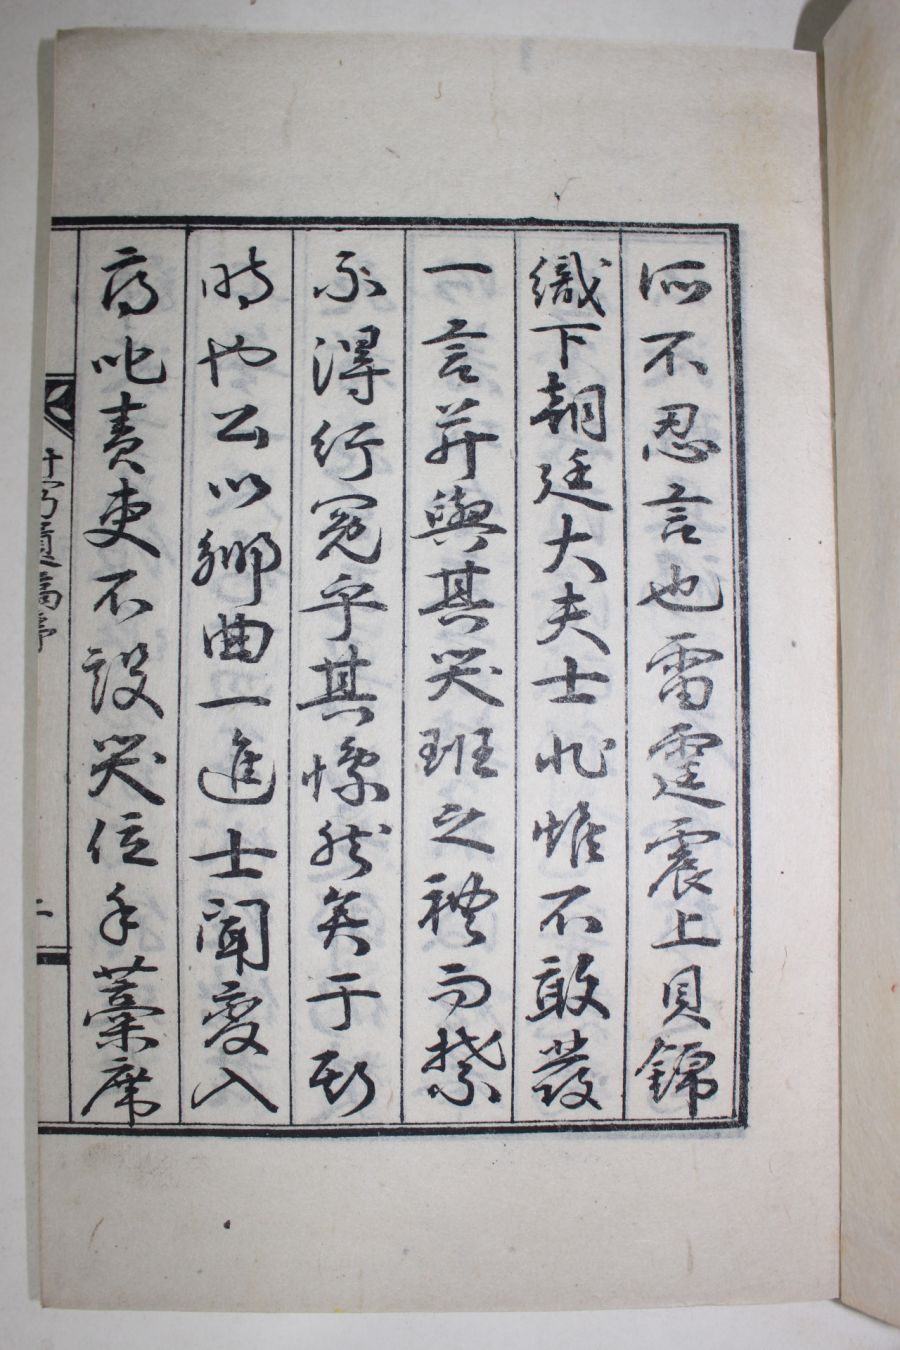 所不忍言也雷霆震上貝錦
織下朝廷大夫士非惟不敢發
一言并與其哭班之禮而禁
不得行冤乎其慘然矣于斯
時也公以鄉曲一進士聞變入
高叱責吏不設哭位手藁席